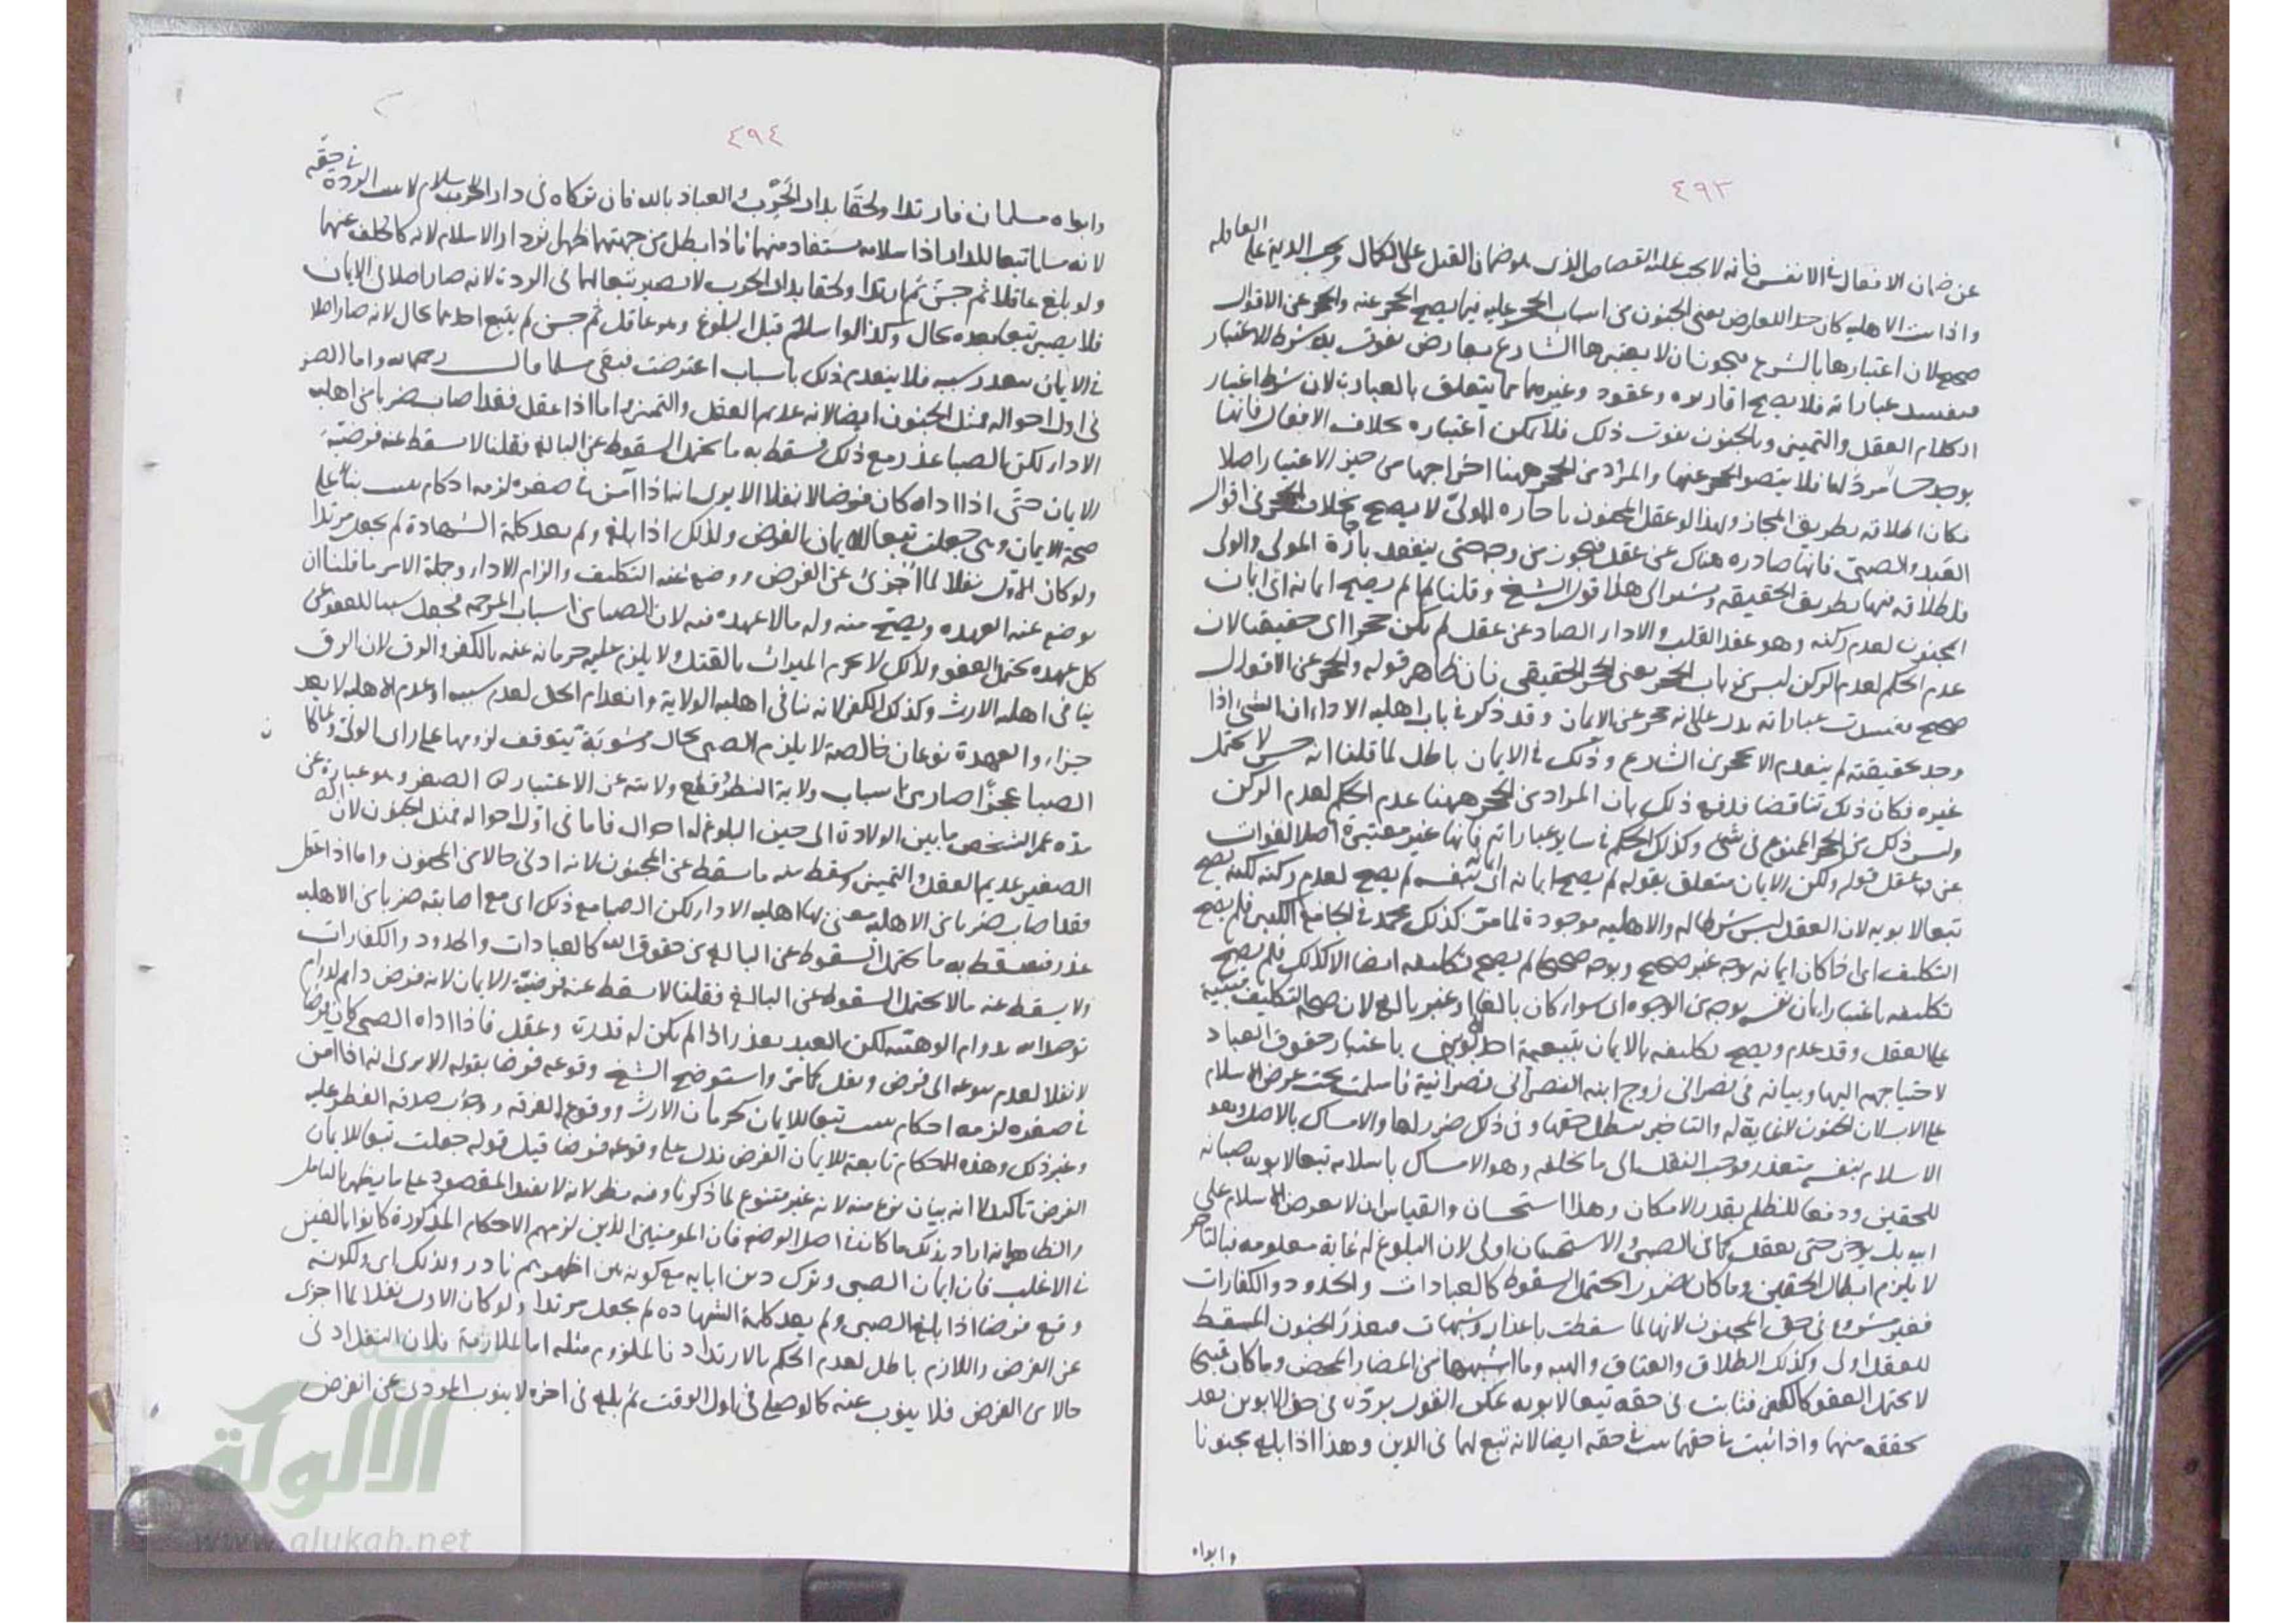 ٤٩٣
عن ضمان الافعال في الانفس فانه لا يجب عليه القصاص الذي هو ضمان القتل على الكمال ويجب الدية على العاقله
واذا الاهليه كان هذا العارض يعني الجنون من اسباب الحجر عليه فيما يصح الحجر عنه والحجر عن الاقوال
صحيح لان اعتبارها بالشرع فيجوز ان لا يعتبرها الشارع بعارض يفوت به شرط الاعتبار
فيفسد عباراته فلا يصح اقاريره وعقود وغيرهما مما يتعلق بالعبارت لان شرط اعتبار
الكلام العقل والتميز وبالجنون يفوت ذلك فلا يمكن اعتباره بخلاف الافعال فانها
يوجد حسا مرد لها فلا يتصور الحجر عنها والمراد من الحجر ههنا اخراجها من حيز الاعتبار اصلا
فكان اطلاقه بطريق المجاز ولهذا لو عقل المجنون باجازه المولى لا يصح بخلاف الحجر في اقوال
العبد والصبي فانها صادره هناك عن عقل فيجوز من وجه حتى ينفعد باذن المولى والولى
فاطلاقه فيها بطريق الحقيقه ويشير الى هذا قول الشيخ وقلنا لما لم يصح ايمانه اى ايمان
المجنون لعدم ركنه وهو عقد القلب والادا الصادر عن عقل لم يكن حجرا اى حقيقيا لان
عدم الحكم لعدم الركن ليس من باب الحجر يعنى الحجر الحقيقى فان ظاهر قوله والحجر عن الاقوال
صحيح ففسدت عباراته يدل على انه حجر عن الايمان وقد ذكر في باب اهلية الاداء ان الشي اذا
وجد بحقيقته لم ينعدم الا بحجر من الشارع وذلك في الايمان باطل لما قلنا انه حسن لا يحتمل
غيره فكان ذلك تناقضا فدفع ذلك بان المراد من الحجر ههنا عدم الحكم لعدم الركن
وليس ذلك من الحجر الممنوع في شي وكذلك الحكم في ساير عباراته فانها غير معتبرة اصلا لفوات
عن عقل قوله ولكن الايمان متعلق بقوله لم يصح ايمانه اى ايمانه بنفسه لم يصح لعدم ركنه لكنه يصح
تبعا لابويه لان العقل ليس شرطا له والاهليه موجودة لما مر كذلك محمد في الجامع الكبير فلم يصح
التكليف اى اذا كان ايمانه بوجه غير صحيح وبوجه صحيحا لم يصح تكليفه ايضا الا كذلك فلم يصح
تكليفه باعتبار ايمان نفسه بوجه من الوجوه اى سواء كان بالغا او غير بالغ لان صحة التكليف مبنية
على العقل وقد عدم ويصح تكليفه بالايمان بتبعية احد ابويه باعتبار حقوق العباد
لاحتياجهم اليها وبيانه في نصراني زوج ابنه النصراني نصرانية فاسلمت يجب عرض الاسلام
على الاب لان الجنون لا غاية له والتاخير يبطل حقها وفي ذلك ضرر لها والامساك بالاصل وهو
الاسلام بنفسه متعذر فوجب النقل الى ما يخلفه وهو الامساك باسلامه تبعا لابويه صيانه
للحقين ودفعا للظلم بقدر الامكان وهذا استحسان والقياس ان لا يعرض الاسلام على
ابيه بل يؤخر حتى يعقل كما في الصبي والاستحسان اولى لان البلوغ له غاية معلومه فبالتاخر
لا يلزم ابطال الحقين وما كان ضررا يحتمل السقوط كالعبادات والحدود والكفارات
فغير مشروع في حق المجنون لانها لما سقطت باعذار وشبهات فبعذر الجنون المسقط
للعقل اولى وكذلك الطلاق والعتاق والهبه وما اشبهها من المضار المحض وما كان قبيحا
لا يحتمل العفو كالكفر فثابت في حقه تبعا لابويه يمكن القول بردته في حق الابوين بعد
تحققه منهما واذا ثبت في حقهما يثبت في حقه ايضا لانه تبع لهما في الدين وهذا اذا بلغ مجنونا
وابواه
٤٩٤
وابواه مسلمان فارتدا ولحقا بدار الحرب والعياذ بالله فان تركاه في دار الاسلام لا يثبت الردة في حقه
لانه مسلما تبعا للدار اذا سلامه مستفاد منهما فاذا بطل من جهتهما ظهر اثر دار الاسلام لانه كالخلف عنهما
ولو بلغ عاقلا ثم جن ثم ارتدا ولحقا بدار الحرب لا يصير تبعا لهما في الردة لانه صار اصلا في الايمان
فلا يصير تبعا بعده بحال وكذا لو اسلم قبل البلوغ وهو عاقل ثم جن لم يتبع احدهما بحال لانه صار اصلا
في الايمان بتقدر سببه فلا ينعدم ذلك باسباب اعترضت فبقي مسلما قال رحمه الله واما الصغر
في اول احواله فمثل الجنون ايضا لانه عديم العقل والتميز واما اذا عقل فقد اصاب ضربا من اهليه
الادا لكن الصبا عذر مع ذلك فسقط به ما يحتمل السقوط عن البالغ فقلنا لا يسقط عنه فرضية
الايمان حتى اذا اداه كان فرضا لا نفلا الا يرى انه اذا آمن في صغره لزمه احكام يثبت بناء على
صحة الايمان وهي جعلت تبعا للايمان الفرض ولذلك اذا بلغ ولم يعد كلمة الشهادة لم يجعل مرتدا
ولو كان الاول نفلا لما اجزئ عن الفرض ووضع عنه التكليف والزام الادا وجملة الامر ما قلنا ان
يوضع عنه العهده ويصح منه وله ما لا عهده فيه لان الصبا من اسباب المرحمه فجعل سببا للعفو عن
كل عهده يحتمل العفو ولذلك لا يحرم الميراث بالقتل ولا يلزم عليه حرمانه عنه بالكفر والرق لان الرق
ينافي اهلية الارث وكذلك الكفر لانه ينافي اهلية الولاية وانعدام الحق لعدم سببه او عدم الاهليه لا يعد
جزاء والعهدة نوعان خالصة لا يلزم الصبي بحال ومشوبة يتوقف لزومها على راى الولى ولما كان
الصبا عجزا صار من اسباب ولاية النظر وقطع ولايته عن الاعتبار الصغر وهو عبارة عن
مدة عمر الشخص ما بين الولادة الى حين البلوغ له احوال فاما في اول احواله فمثل الجنون لان
الصغير عديم العقل والتميز وسقط منه ما سقط عن المجنون لانه ادنى حالا من المجنون واما اذا عقل
فقد اصاب ضربا من الاهليه يعني بها اهلية الادا لكن الصبا مع ذلك اى مع اصابته ضربا من الاهليه
عذر فيسقط به ما يحتمل السقوط عن البالغ من حقوق الله كالعبادات والحدود والكفارات
ولا يسقط عنه ما لا يحتمل السقوط عن البالغ فقلنا لا يسقط عنه فرضية الايمان لانه فرض دايم لدوام
توحد الله بدوام الوهيته لكن العبد يعذر اذا لم يكن له قدرت وعقل فاذا اداه الصبي كان فرضا
لا نفلا لعدم تنوعه الى فرض ونفل كما مر واستوضح الشيخ وقوعه فرضا بقوله الا يرى انه اذا آمن
في صغره لزمه احكام يثبت تبعا للايمان كحرمان الارث ووقوع الفرقه ووجوب صدقه الفطر عليه
وغير ذلك وهذه الاحكام تابعة للايمان الفرض فدل على وقوعه فرضا قيل قوله جعلت تبعا للايمان
الفرض تاكيد لا انه بيان نوع منه لانه غير متنوع لما ذكرنا وفيه نظر لانه لا يفيد المقصود على ما يظهر بالتامل
والظاهر انه اراد بذلك ما كان في اصل الوضع فان المومنين الذين لزمهم الاحكام المذكورة كانوا بالغين
في الاغلب فان ايمان الصبي وترك دين ابايه مع كونه بين اظهرهم نادر ولذلك اى ولكونه
وقع فرضا اذا بلغ الصبي ولم يعد كلمة الشهاده لم يجعل مرتدا ولو كان الاول نفلا لما اجزى
عن الفرض واللازم باطل لعدم الحكم بالارتداد فالملزوم مثله اما الملازمة فلان النفل ادنى
حالا من الفرض فلا ينوب عنه كما لو صلى في اول الوقت ثم بلغ في اخره لا ينوب المودى عن الفرض
شبكة
الألوكة
www.alukah.net